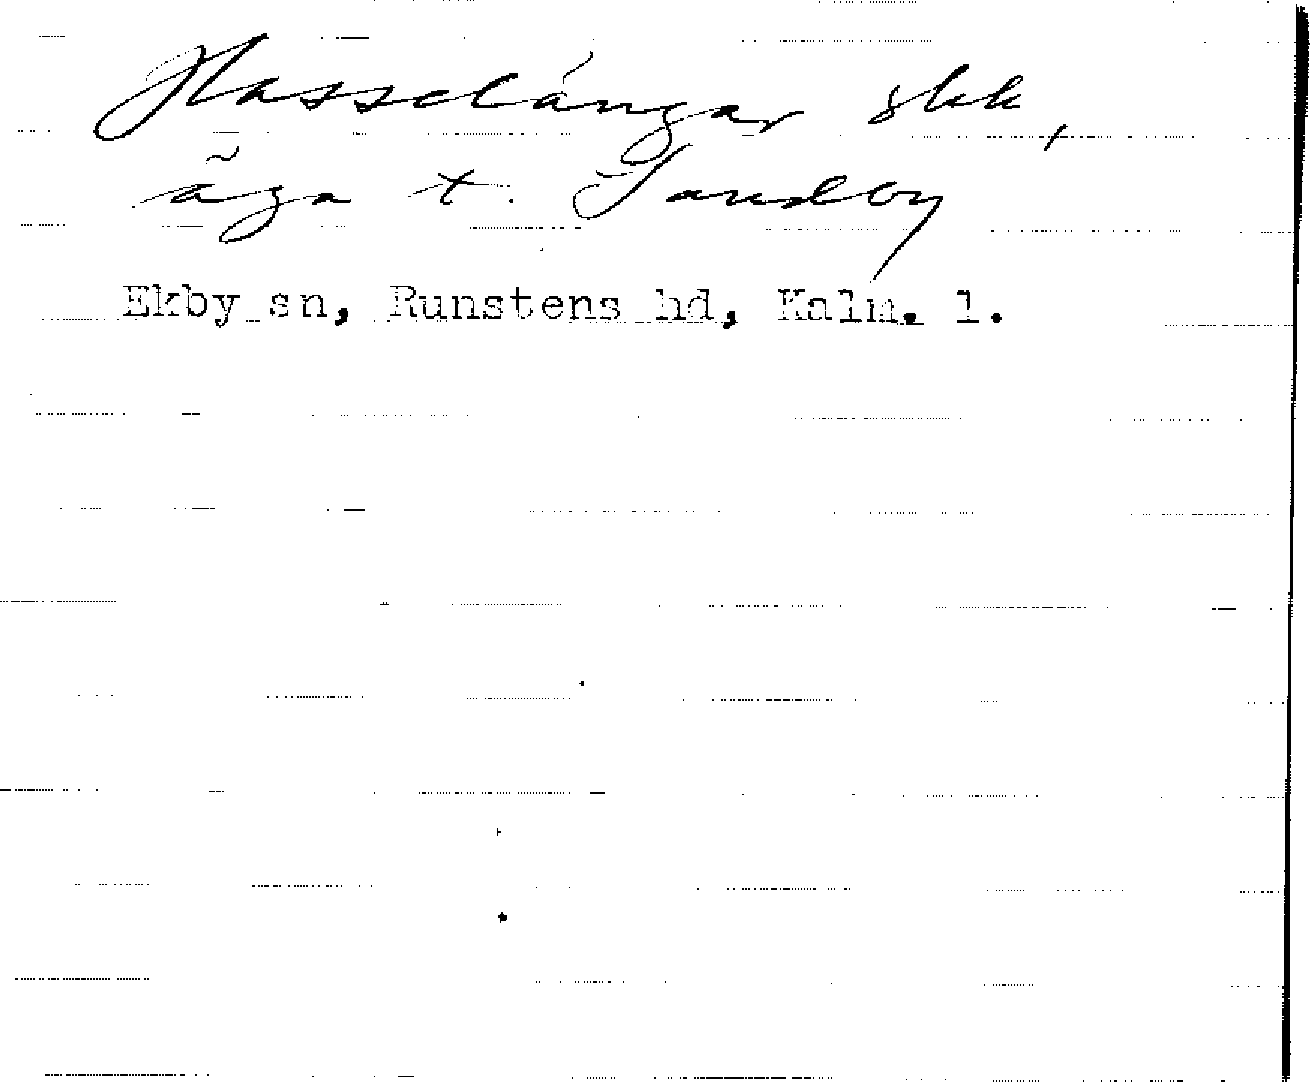 Hasselängar skk,
äga t. Sandby
Ekby sn, Runstens hd, Kalm. l.